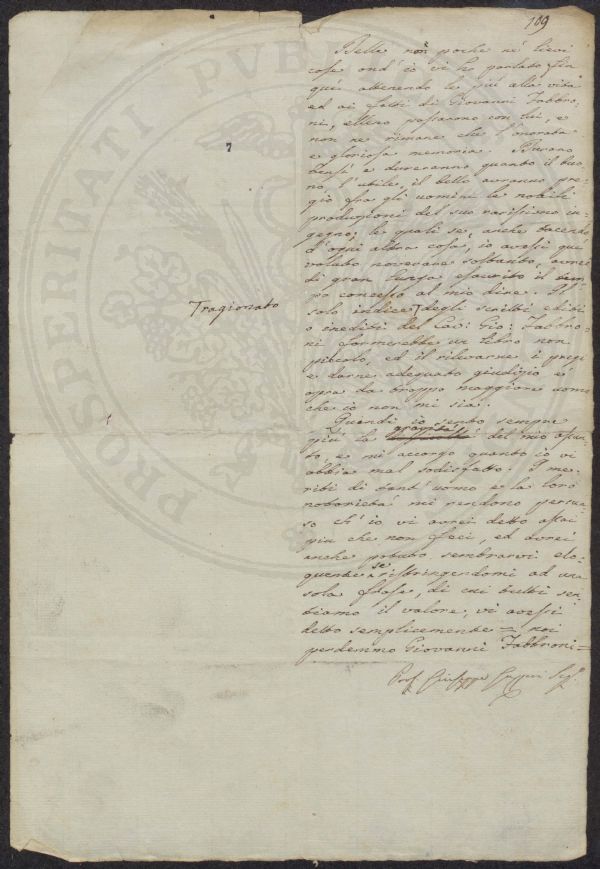 109
Delle non poche nè lievi
cose ond'io vi ho parlato fin
quì attenendo le più alla vita
ed ai fatti di Giovanni Fabbro-
ni, esse passarono con lui, e
non ne rimane che l'onorata
e gloriosa memoria. Durano
bensì e dureranno quanto il buo-
no l'utile, il bello avranno pre-
gio fra gli uomini le nobili
produzioni del suo rarissimo in-
gegno; le quali se, anche tacendo
d'ogni altra cosa, io avessi qui
voluto noverare soltanto, avrei
di gran lunga esaurito il tem-
po concesso al mio dire. Il
solo indice degli scritti editi
Tragionato
o inediti del Cav: Gio: Fabbro-
ni formerebbe un libro non
piccolo, ed il rilevarne i pregi
e darne adeguato giudizio è
opra da troppo maggiore uomo
che io non mi sia.
Quindi io sento sempre
più la gravità del mio assun-
to, e mi accorgo quanto io vi
abbia mal sodisfatto. I me-
riti di tant'uomo e la loro
notorietà mi rendono persua-
so ch'io vi avrei detto assai
più che non feci, ed avrei
anche potuto sembrarvi elo-
quente se ristringendomi ad una
sola frase, di cui tutti sen-
tiamo il valore, vi avessi
detto semplicemente = noi
perdemmo Giovanni Fabbroni =
Prof. Giuseppe Seg.
PROSPERITATI PVBLICAE